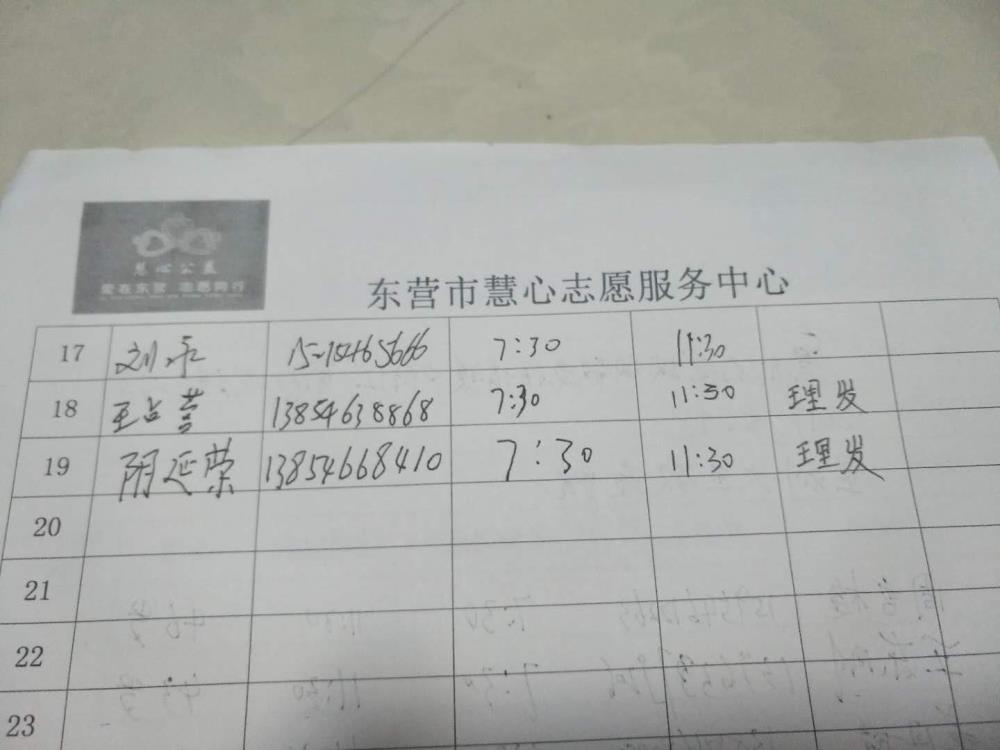 慧心公益
爱在东营 志愿同行
东营市慧心志愿服务中心
17 刘平 15254665666 7:30 11:30
18 王占营 13854638868 7:30 11:30 理发
19 阴延荣 13854668410 7:30 11:30 理发
20
21
22
23